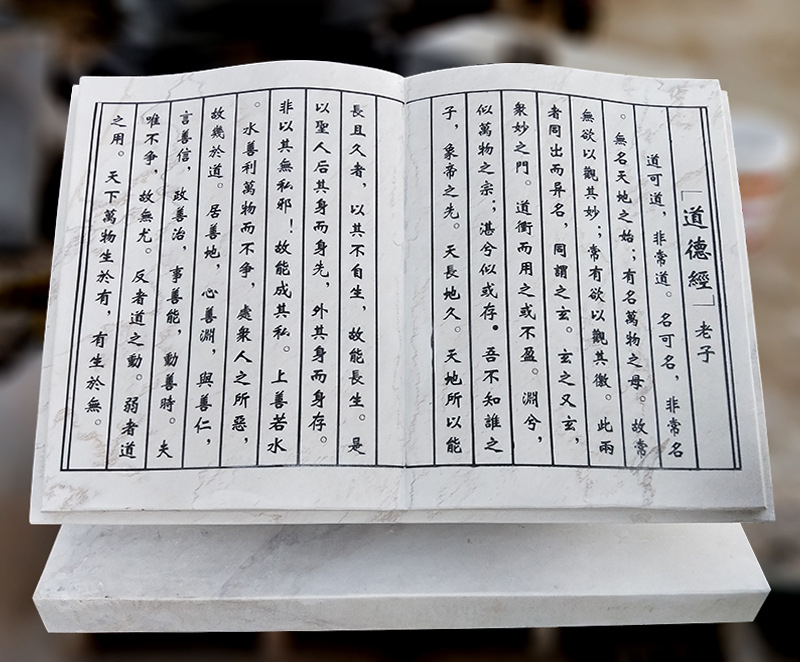 「道德經」老子
道可道，非常道。名可名，非常名
。無名天地之始；有名萬物之母。故常
無欲以觀其妙；常有欲以觀其徼。此兩
者同出而异名，同謂之玄。玄之又玄，
衆妙之門。道衝而用之或不盈。淵兮，
似萬物之宗；湛兮似或存。吾不知誰之
子，象帝之先。天長地久。天地所以能
長且久者，以其不自生，故能長生。是
以聖人后其身而身先，外其身而身存。
非以其無私邪！故能成其私。上善若水
。水善利萬物而不争，處衆人之所惡，
故幾於道。居善地，心善淵，與善仁，
言善信，政善治，事善能，動善時。夫
唯不争，故無尤。反者道之動。弱者道
之用。天下萬物生於有，有生於無。